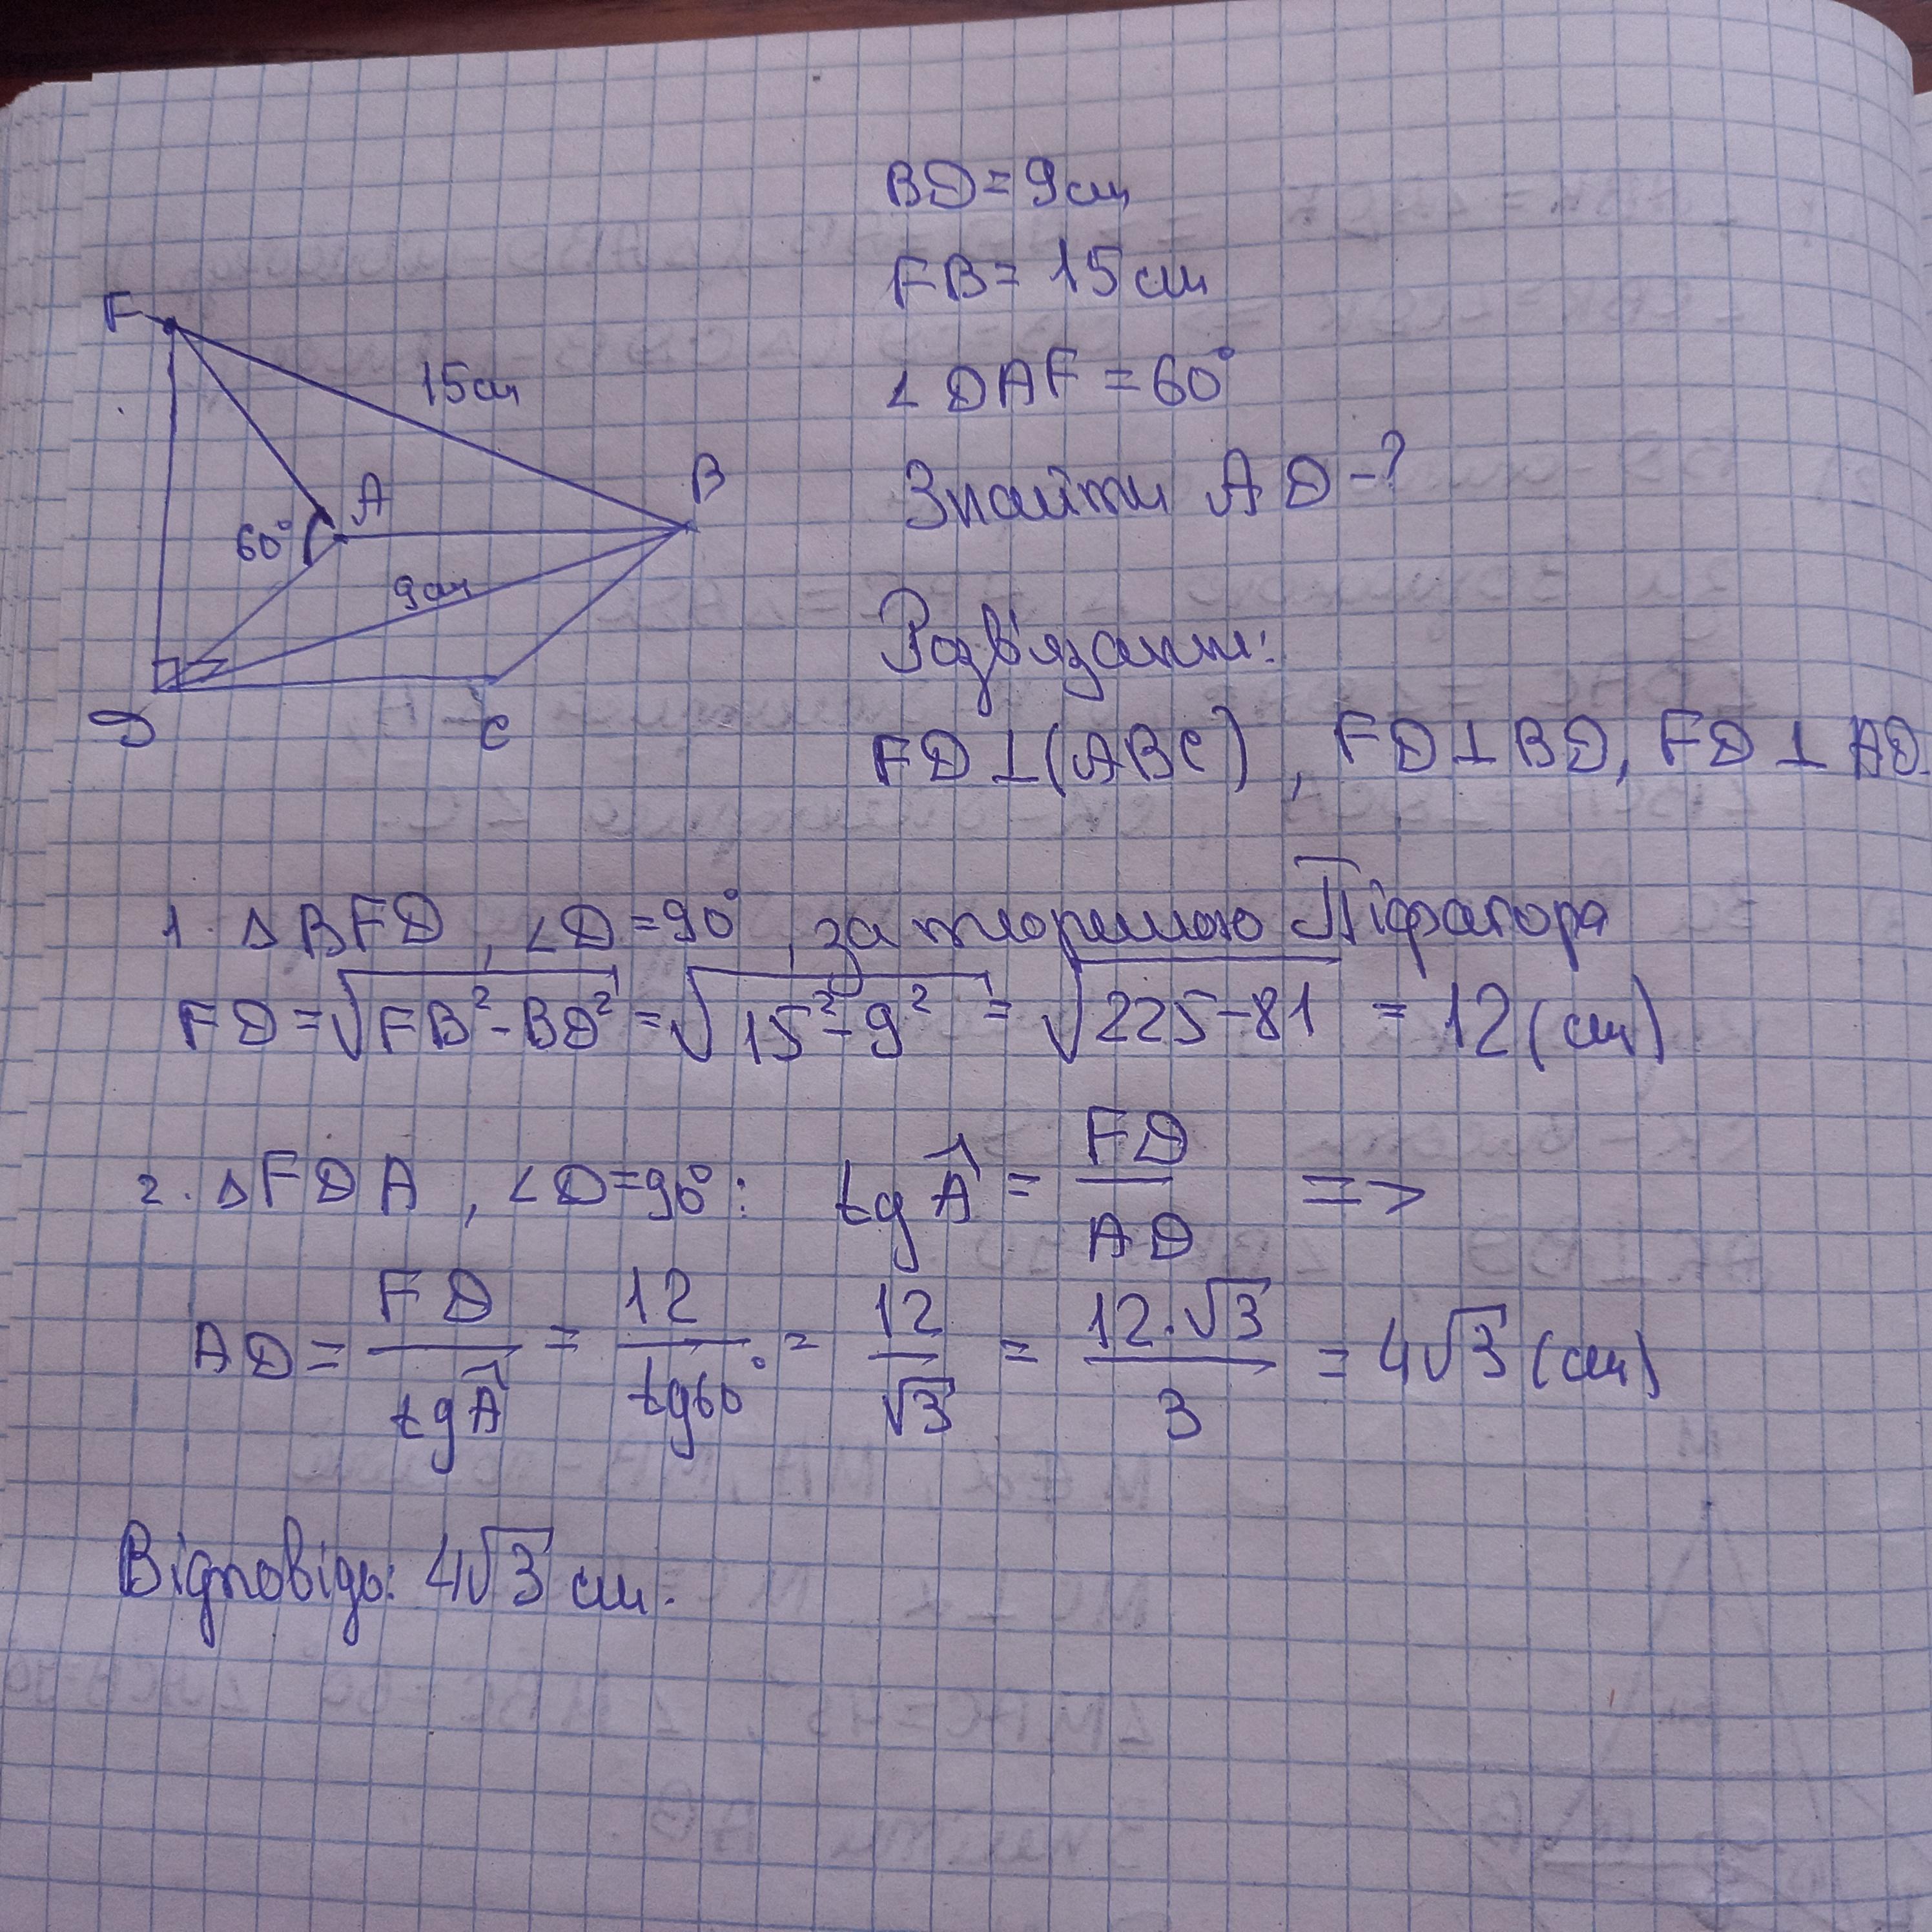 BD = 9 см
FB = 15 см
∠ DAF = 60°
Знайти AD - ?
F
15 см
A
B
60°
9 см
D
C
Розв'язання:
FD ⊥ (ABC), FD ⊥ BD, FD ⊥ AD
1. Δ BFD, ∠D = 90°, за теоремою Піфагора
FD = √(FB² - BD²) = √(15² - 9²) = √(225 - 81) = 12 (см)
2. Δ FDA, ∠D = 90°: tg Â = FD / AD =>
AD = FD / tg Â = 12 / tg 60° = 12 / √3 = 12 · √3 / 3 = 4√3 (см)
Відповідь: 4√3 см.